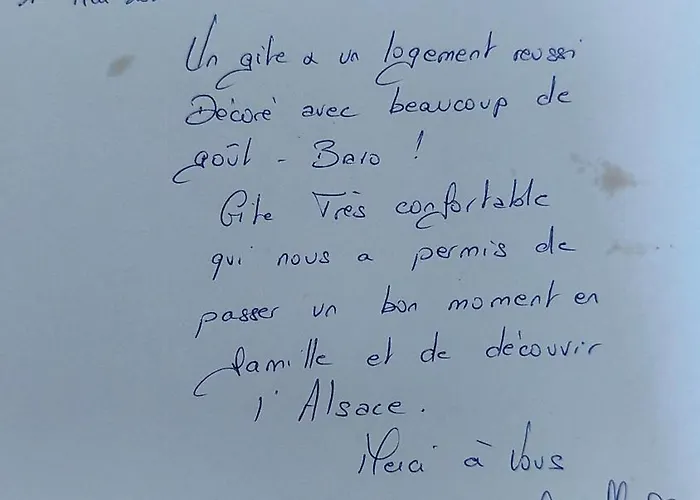 Un gite a un logement reussi
Décoré avec beaucoup de
goût - Bavo !
Gite Très confortable
qui nous a permis de
passer un bon moment en
famille et de découvrir
l'Alsace.
Merci à Vous